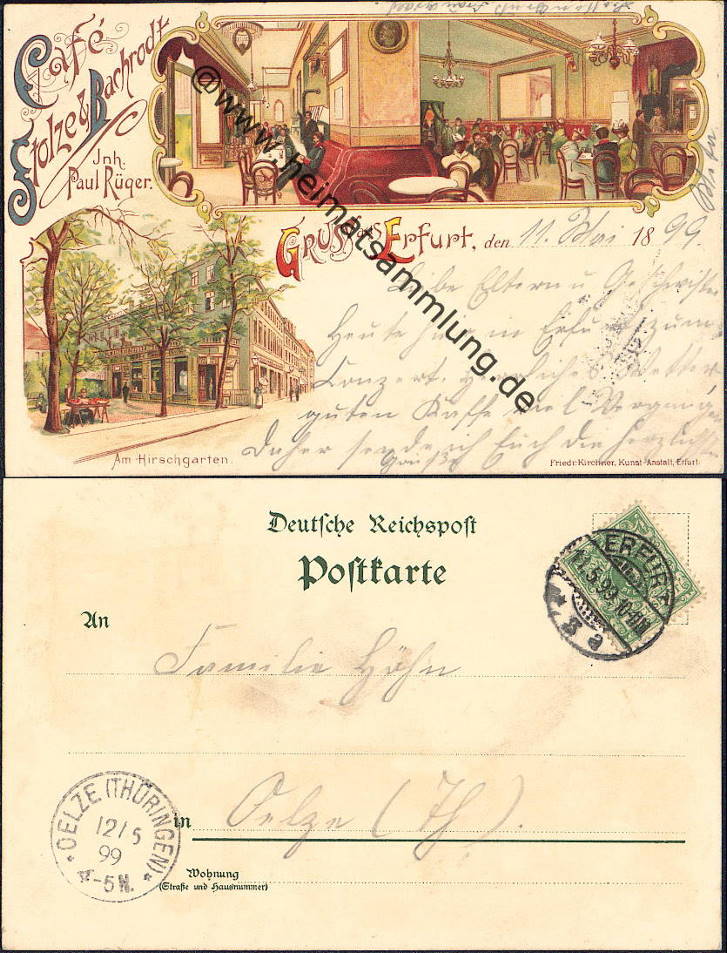 Café
Stolze & Bachrodt
Inh.
Paul Rüger.
Gruss aus Erfurt, den 11. Mai 1899.
Liebe Eltern u Geschwister
Heute hier in Erfurt zum
Conzert, herrliches Wetter
guten Kaffe viel Vergnüg
Daher sende ich Euch die herzlichsten
Grüße
Am Hirschgarten.
Friedr. Kirchner, Kunst-Anstalt, Erfurt.
@www.heimatsammlung.de
Deutsche Reichspost
Postkarte
ERFURT
11.5.99.10-11N
* 5 a
An
Familie Höhn
in Oelze (Th).
OELZE (THÜRINGEN)
12/5
99
4-5N.
Wohnung
(Straße und Hausnummer)